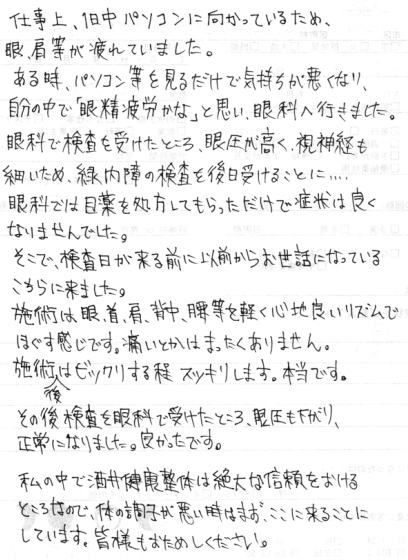 仕事上、1日中パソコンに向かっているため、
眼、肩等が疲れていました。
ある時、パソコン等を見るだけで気持ちが悪くなり、
自分の中で「眼精疲労かな」と思い、眼科へ行きました。
眼科で検査を受けたところ、眼圧が高く、視神経も
細いため、緑内障の検査を後日受けることに....
眼科では目薬を処方してもらっただけで症状は良く
なりませんでした。
そこで、検査日が来る前に以前からお世話になっている
こちらに来ました。
施術は、眼、首、肩、背中、腰等を軽く心地良いリズムで
ほぐす感じです。痛いとかはまったくありません。
施術後はビックリする程スッキリします。本当です。
その後検査を眼科で受けたところ、眼圧も下がり、
正常になりました。良かったです。
私の中で酒井健康整体は絶大な信頼をおける
ところなので、体の調子が悪い時はまず、ここに来ることに
しています。皆様もおためしください。